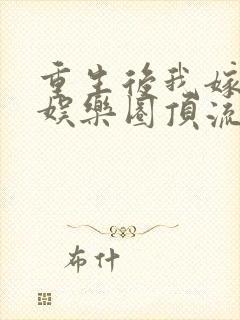 重生後我嫁
娛樂圈頂流
布什